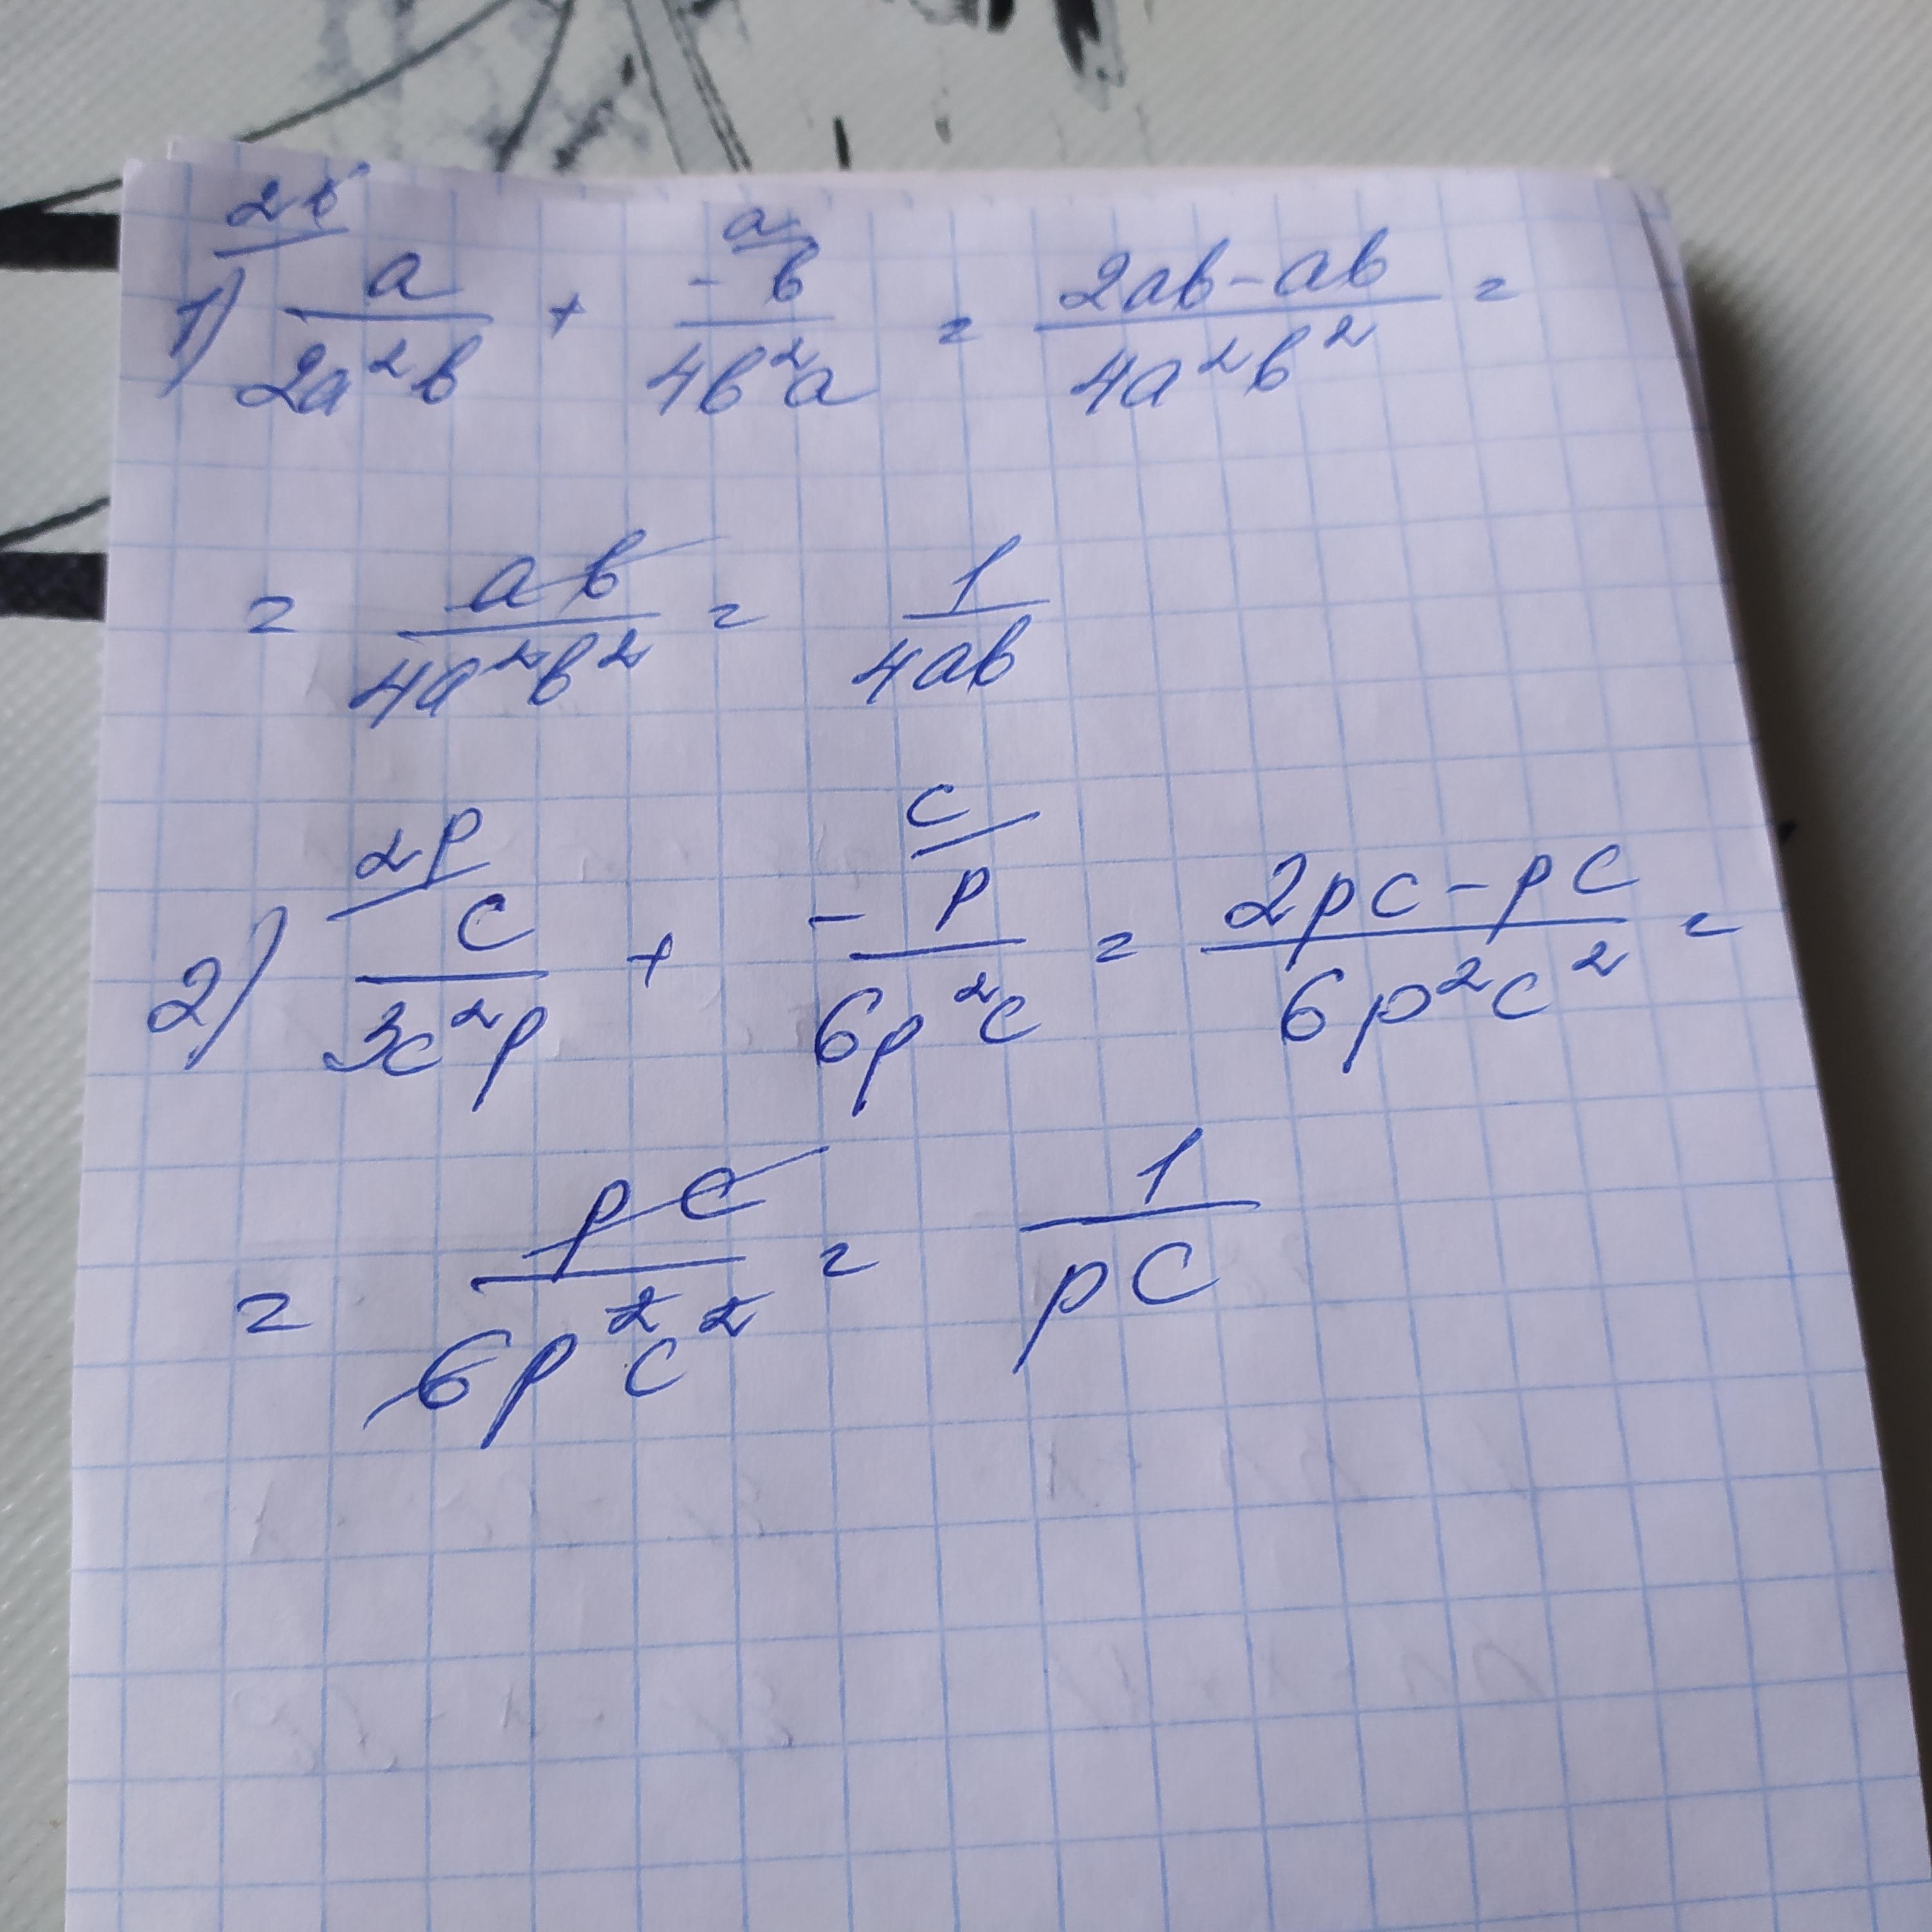 1) 2b/ a/(2a²b) + a/ -b/(4b²a) = (2ab-ab)/(4a²b²) =
= ab/(4a²b²) = 1/(4ab)
2) 2p/ c/(3c²p) + c/ -p/(6p²c) = (2pc-pc)/(6p²c²) =
= pc/(6p²c²) = 1/(pc)